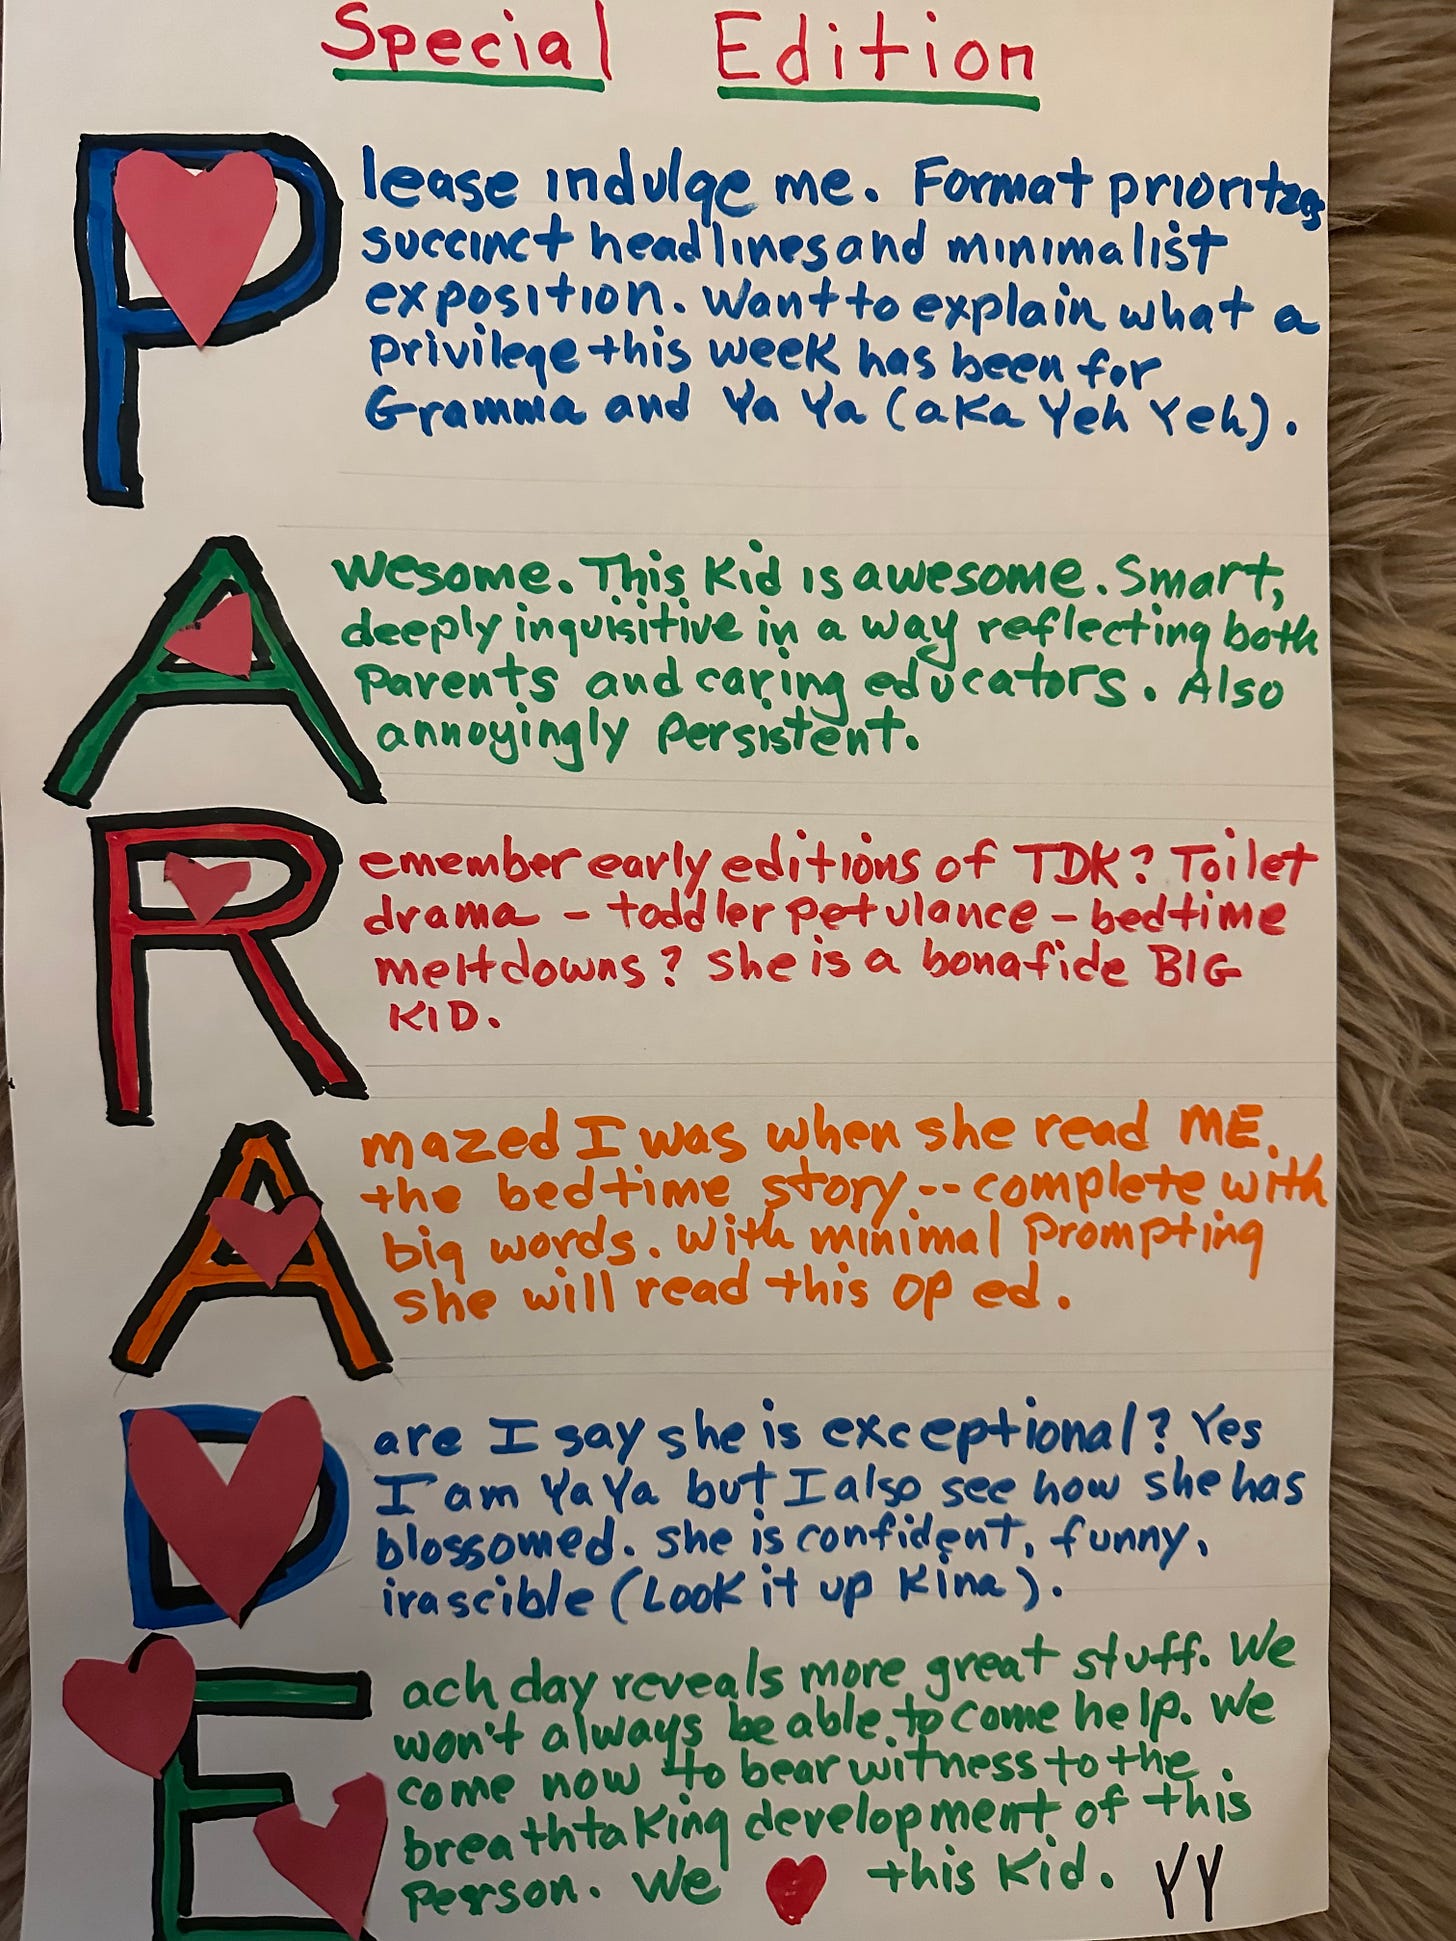 Special Edition
Please indulge me. Format prioritzes
succinct headlines and minimalist
exposition. Want to explain what a
privilege this week has been for
Gramma and Ya Ya (aka Yeh Yeh).
Awesome. This Kid is awesome. Smart,
deeply inquisitive in a way reflecting both
parents and caring educators. Also
annoyingly persistent.
Remember early editions of TDK? Toilet
drama - toddler petulance - bedtime
meltdowns? She is a bonafide BIG
KID.
Amazed I was when she read ME.
the bedtime story -- complete with
big words. With minimal prompting
she will read this op ed.
Dare I say she is exceptional? Yes
I am YaYa but I also see how she has
blossomed. She is confident, funny,
irascible (Look it up Kina).
Each day reveals more great stuff. We
won't always be able to come help. We
come now to bear witness to the
breathtaking development of this
person. We ❤ this Kid. YY